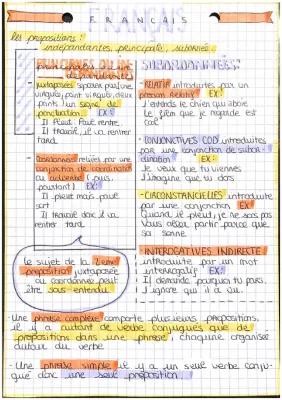 FRANÇAIS
les propositions :
indépendantes, principale, subordonnée.
indépendantes
- juxtaposées séparées par une
virgule, point virgule, deux
points / un signe de
ponctuation. EX:
Il pleut faut rentrer.
Il travail, il va rentrer
tard.
- coordonnées reliées par une
conjonction de coordination
ou adverbe (puis,
pourtant) EX:
Il pleut mais faut
sort
Il travail donc il va
rentrer tard.
le sujet de la 2eme
proposition juxtaposée
ou coordonnée peut
être sous entendu
SUBORDONNÉES:
- RELATIF introduites par un
pronom relatif EX:
J'entends le chien qui aboie
Le film que je regarde est
cool
- CONJONCTIVES COD introduites
par une conjonction de subor-
dination EX:
Je veux que tu viennes
J'imagine que tu dors
- CIRCONSTANCIELLES introduite
par une conjonction EX:
Quand il pleut, je ne sors pas
Vous allez partir parce que
sa sonne.
- INTERROGATIVES INDIRECTE:
introduite par un mot
interrogatif EX:
Il demande pourquoi tu pars.
J'ignore qui il a vu.
- Une phrase complète comporte plusieurs propositions.
il y a autant de verbe conjugués que de
propositions dans une phrase, chacune organisée
autour du verbe
- Une phrase simple il y a un seul verbe conju-
gué donc une seul préposition.